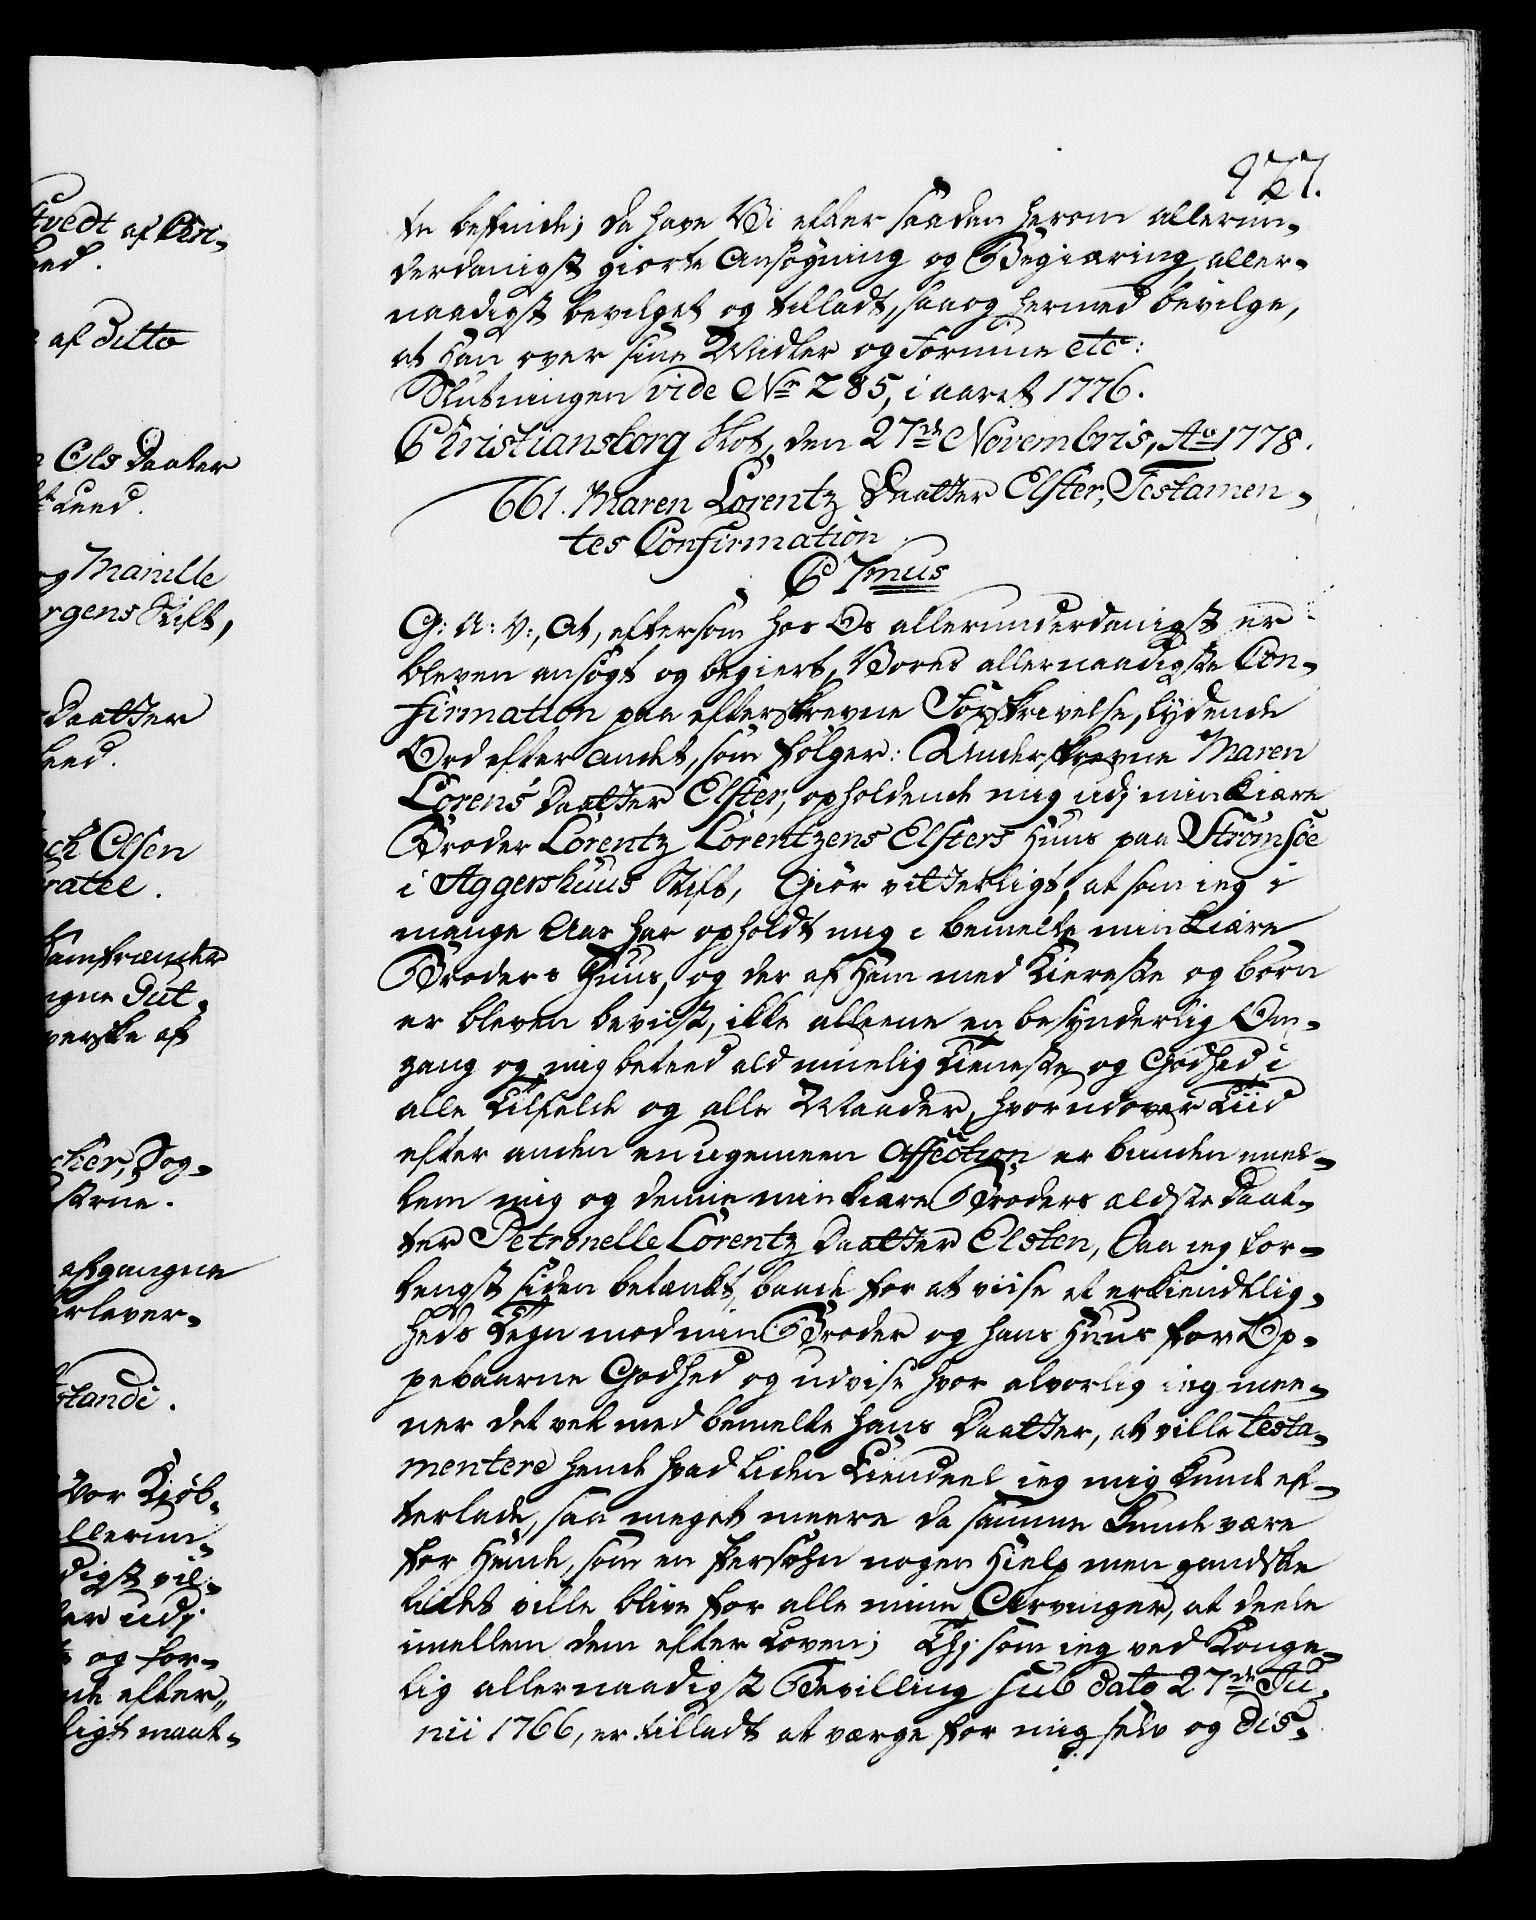 927.
te befinde; da have Vi efter saadan herom allerun-
derdanigst giorte Ansøgning og Begiæring, aller-
naadigst bevilget og tilladt, saa og hermed bevilge,
at han over sine Midler og Formue etc:
Slutningen vide No 285, i aaret 1776.
Christiansborg Slot, den 27de Novembris, Ao 1778.
661. Maren Lorentz Daatter Elster, Testamen-
tes Confirmation.
C 7mus
G: A: V:, At, eftersom hos Os allerunderdanigst er
bleven ansøgt og begiert, Vores allernaadigste Con-
firmation paa efterskrevne Forskrivelse, lydende
Ord efter andet, som følger: Underskrevne Maren
Lorens Daatter Elster, opholdende mig udj min kiære
Broder Lorentz Lorentzens Elsters Huus paa Strømsøe
i Aggershuus Stift, Giør vitterligt, at som ieg i
mange Aar har opholdt mig i bemelte min kiære
Broders Huus, og der af Ham med Kiereste og børn
er bleven beviist, ikke alleene en besynderlig Om-
gang og mig beteed ald muelig tieneste og Godhed i
alle Tilfelde og alle Maader, hvorudover Tiid
efter anden en ugemeen Affection er bunden mel-
lem mig og denne min kiære Broders ældste Daat-
ter Petronelle Lorentz Daatter Elsten, Saa ieg for-
lengst siden betænkt, baade for at viise et erkiendtlig-
heds Tegn mod min Broder og hans Huus for Op-
pebaarne Godhed og udvise hvor alvorlig ieg mee-
ner det vel med bemelte hans Daatter, at ville testa-
mentere hende hvad liden Eiendeel ieg mig kunde ef-
terlade, saa meget meere da samme kunde være
for Hende, som en Persohn nogen Hielp men gandske
lidet ville blive for alle mine Arvinger, at deele
imellem dem efter Loven; Thj som ieg ved Konge-
lig allernaadigst Bevilling sub dato 27de Ju-
nii 1766, er tilladt at værge for mig selv og dis-
tvedt af Chri-
af ditto
Ols Daatter
og Marille
ergens Stift,
Daatter
Olsen
afgangne
Vor Kjøb-
allerun-
er udj
og for-
efter
ligt maat-